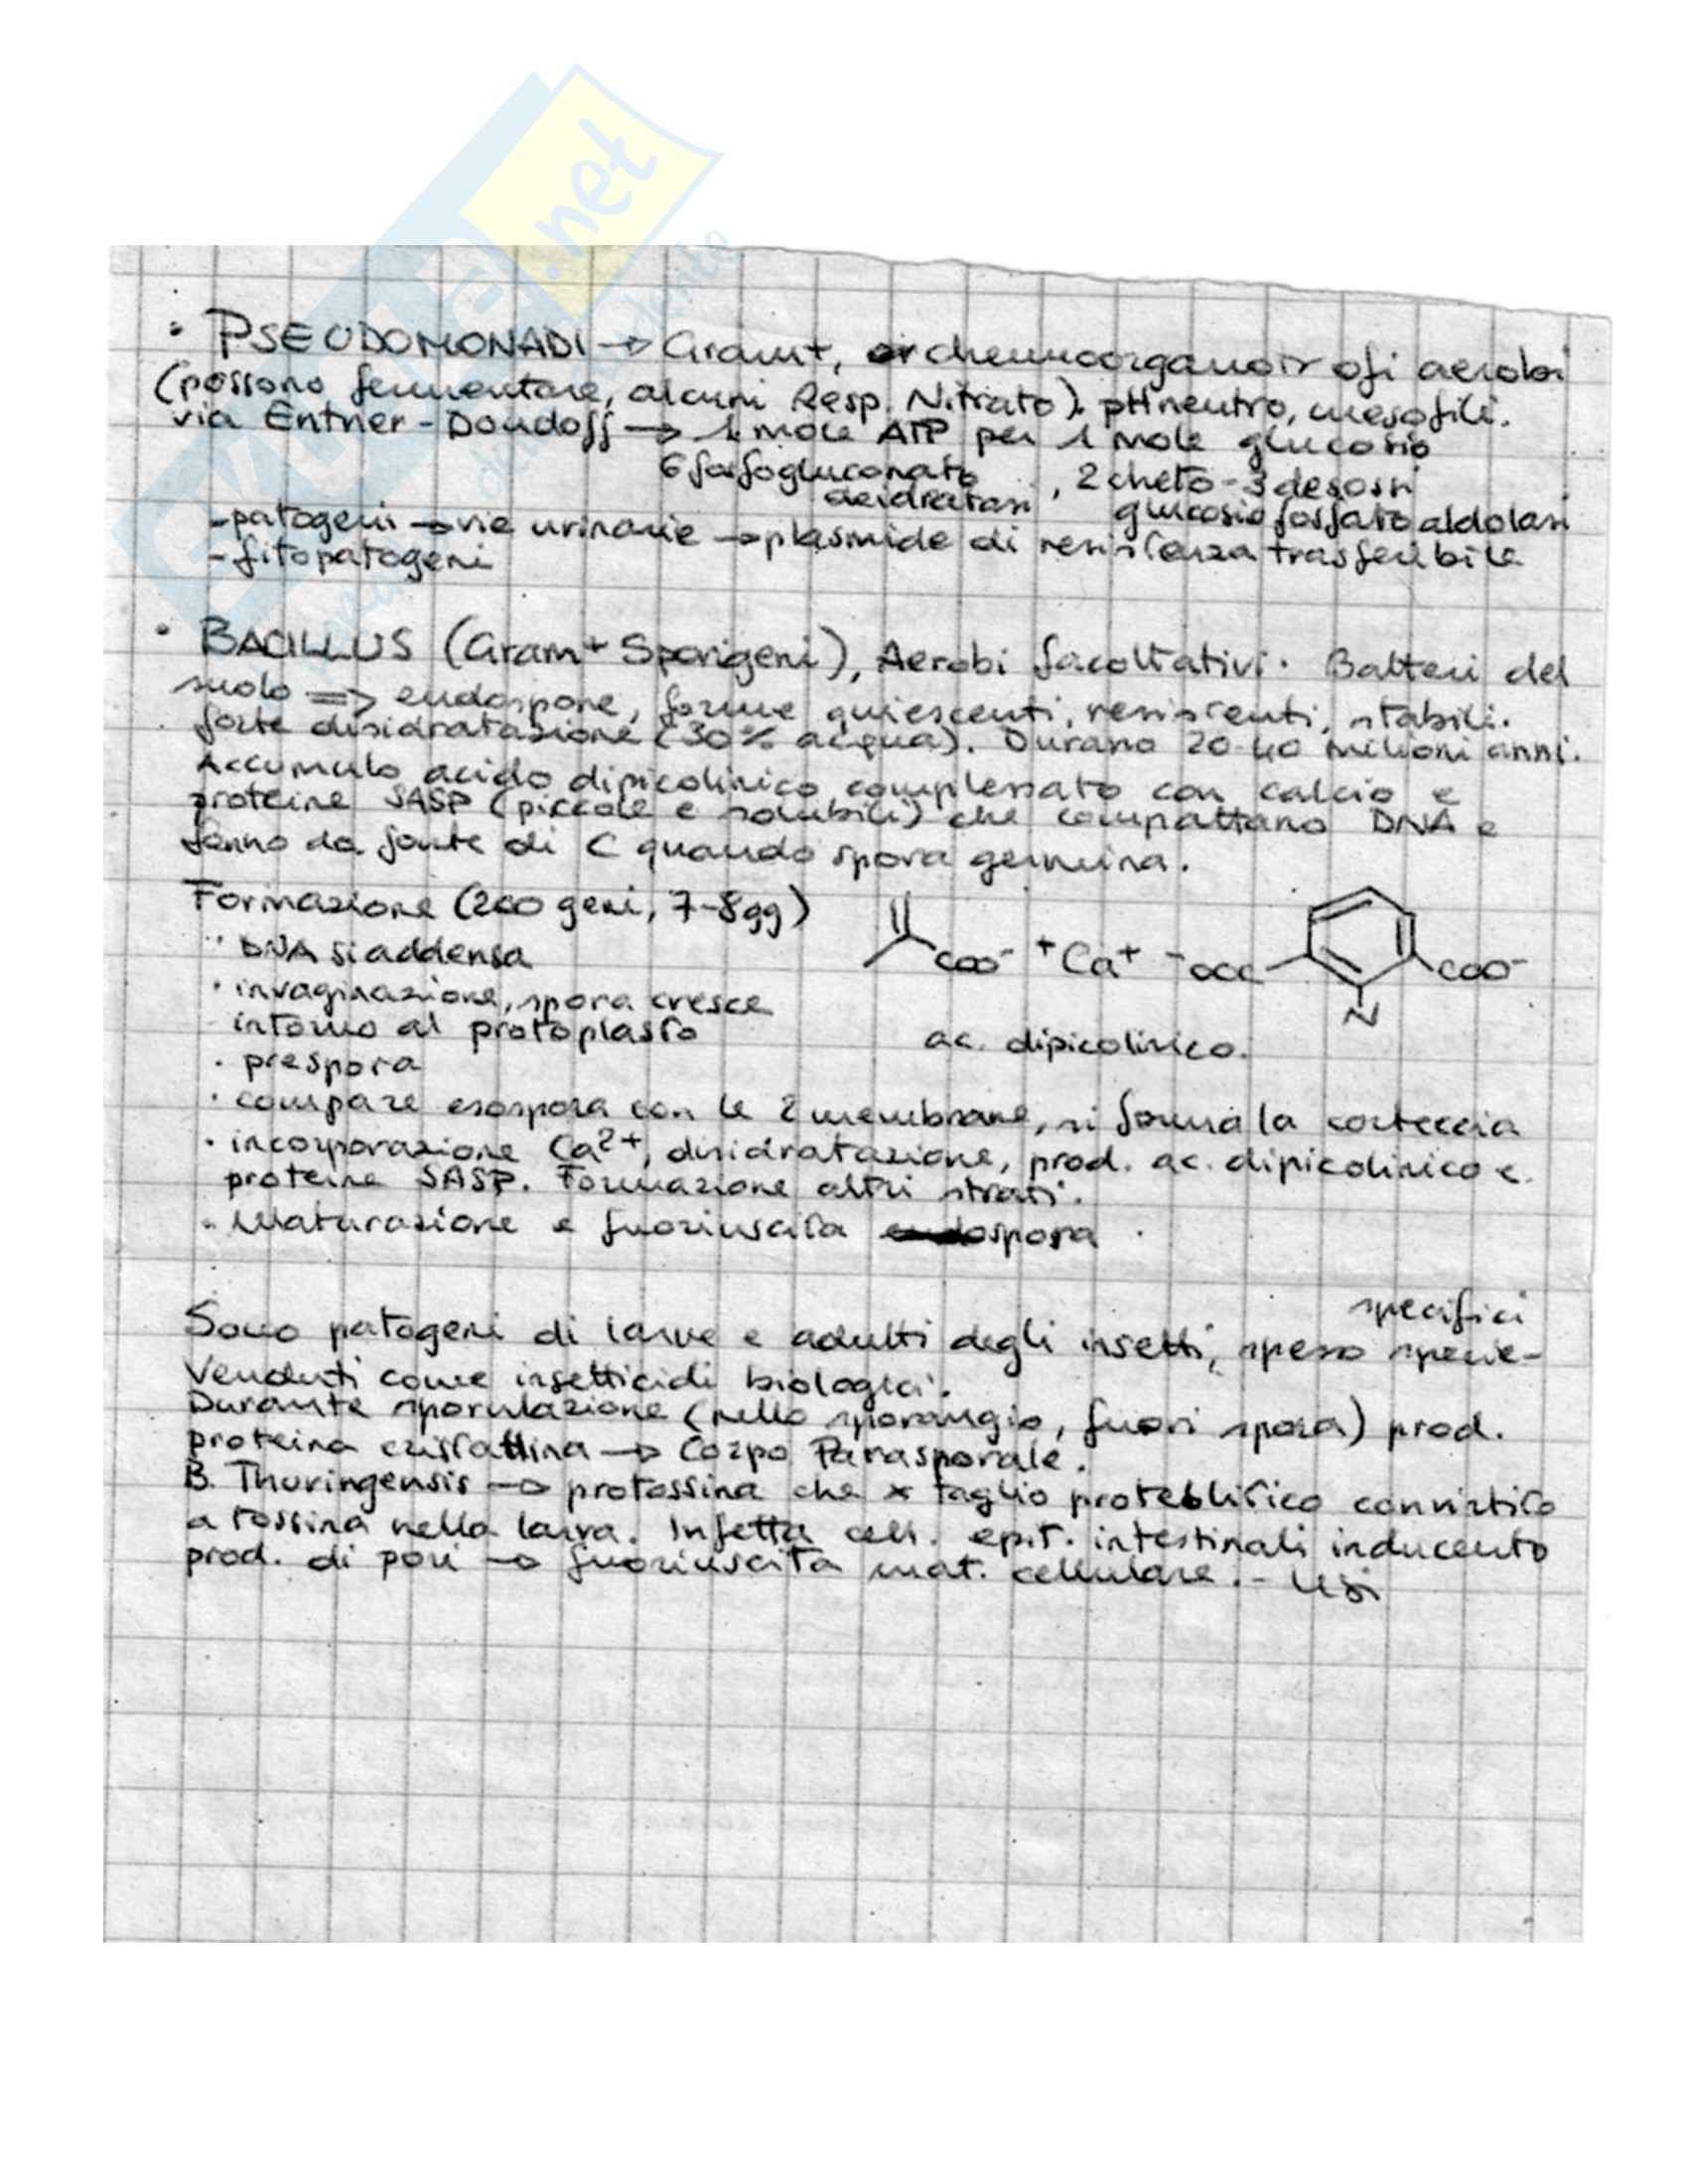 • PSEUDOMONADI → Gram+, chemioorganotrofi aerobi
(possono fermentare, alcuni Resp. Nitrato). pH neutro, mesofili.
via Entner-Doudoff → 1 mole ATP per 1 mole glucosio
6 fosfogluconato , 2 cheto-3 desossi
deidratasi glucosio fosfato aldolasi
-patogeni → vie urinarie → plasmide di resistenza trasferibile
-fitopatogeni
• BACILLUS (Gram+ Sporigeni), Aerobi facoltativi. Batteri del
suolo => endospore, forme quiescenti, resistenti, stabili.
forte disidratazione (30% acqua). Durano 20-40 milioni anni.
Accumulo acido dipicolinico complessato con calcio e
proteine SASP (piccole e solubili) che compattano DNA e
fanno da fonte di C quando spora germina.
Formazione (200 geni, 7-8gg)
· DNA si addensa
· invaginazione, spora cresce
intorno al protoplasto
· prespora
COO⁻ ⁺Ca⁺ ⁻OOC COO⁻
N
ac. dipicolinico.
· compare esospora con le 2 membrane, si forma la corteccia
· incorporazione Ca²⁺, disidratazione, prod. ac. dipicolinico e
proteine SASP. Formazione altri strati.
· Maturazione e fuoriuscita endospora
Sono patogeni di larve e adulti degli insetti, spesso specie-
specifici
Venduti come insetticidi biologici.
Durante sporulazione (nello sporangio, fuori spora) prod.
proteina cristallina → Corpo Parasporale.
B. Thuringensis → protossina che x taglio proteolitico convertito
a tossina nella larva. Infetta cell. epit. intestinali inducento
prod. di pori → fuoriuscita mat. cellulare. - lisi
E
.net